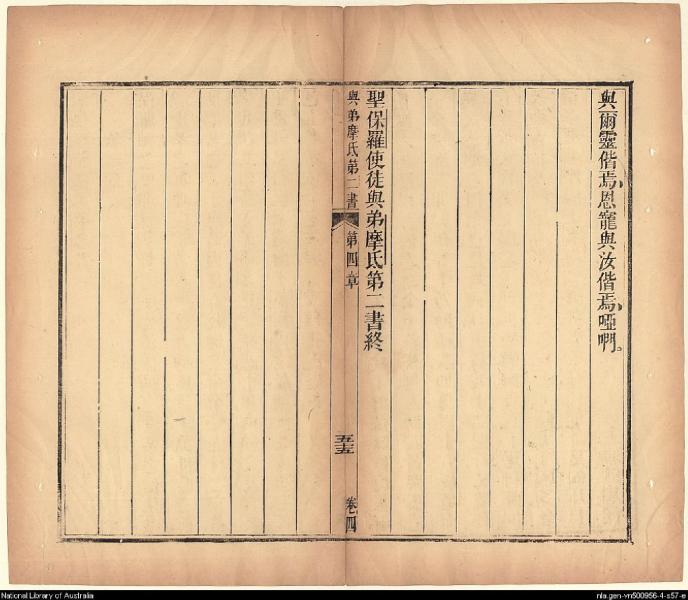 與爾靈偕焉、恩寵與汝偕焉、啞啊。
聖保羅使徒與弟摩氐第二書終
與弟摩氐第二書 第四章 五五 卷四
National Library of Australia
nla.gen-vn500956-4-s57-e